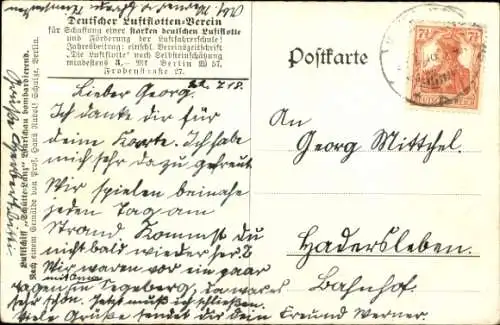 Deutscher Luftflotten-Verein
für Schaffung einer starken deutschen Luftflotte
und Förderung der Luftfahrerschule:
Jahresbeitrag: einschl. Vereinszeitschrift
"Die Luftflotte" nach Selbsteinschätzung
mindestens 3,— Mk. Berlin W 57.
Frobenstraße 27.
Luftschiff „Schütte-Lanz" Warschau bombardierend.
Nach einem Gemälde von Prof. Hans Rudolf Schulze, Berlin.
Postkarte
7½
7½
Lieber Georg.
Ich danke dir für
deine Kaarte. Ich habe
mich sehr dazu gefreut
Wir spielen beinahe
jeden Tag am
Strand Kommst du
nicht bald wieder her?
Wir waren vor ein paar
Tagen in Segeberg, da war es
sehr schön. Jetzt muß ich schließen.
viele Grüße sendet dir dein Freund Werner.
An
Georg Mittchel.
Hadersleben.
Bahnhof.